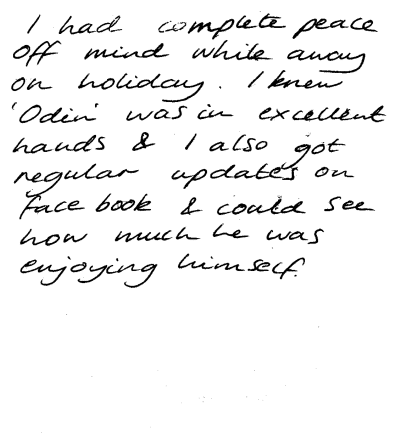 I had complete peace
off mind while away
on holiday. I knew
'Odin' was in excellent
hands & I also got
regular updates on
face book & could see
how much he was
enjoying himself.